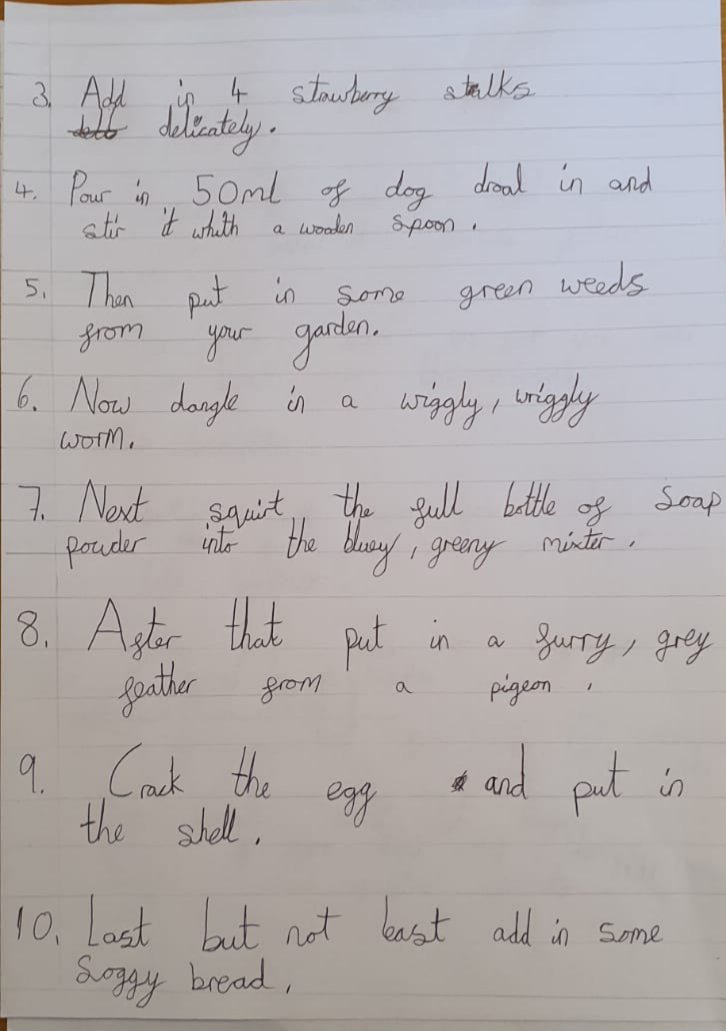 3. Add in 4 stawberry stalks
delicately.
4. Pour in 50ml of dog droal in and
stir it whith a wooden spoon.
5. Then put in some green weeds
from your garden.
6. Now dangle in a wiggly, wriggly
worm.
7. Next squirt the full bottle of soap
powder into the bluey, greeny mixter.
8. After that put in a furry, grey
feather from a pigeon.
9. Crack the egg and put in
the shell.
10. Last but not least add in some
soggy bread.